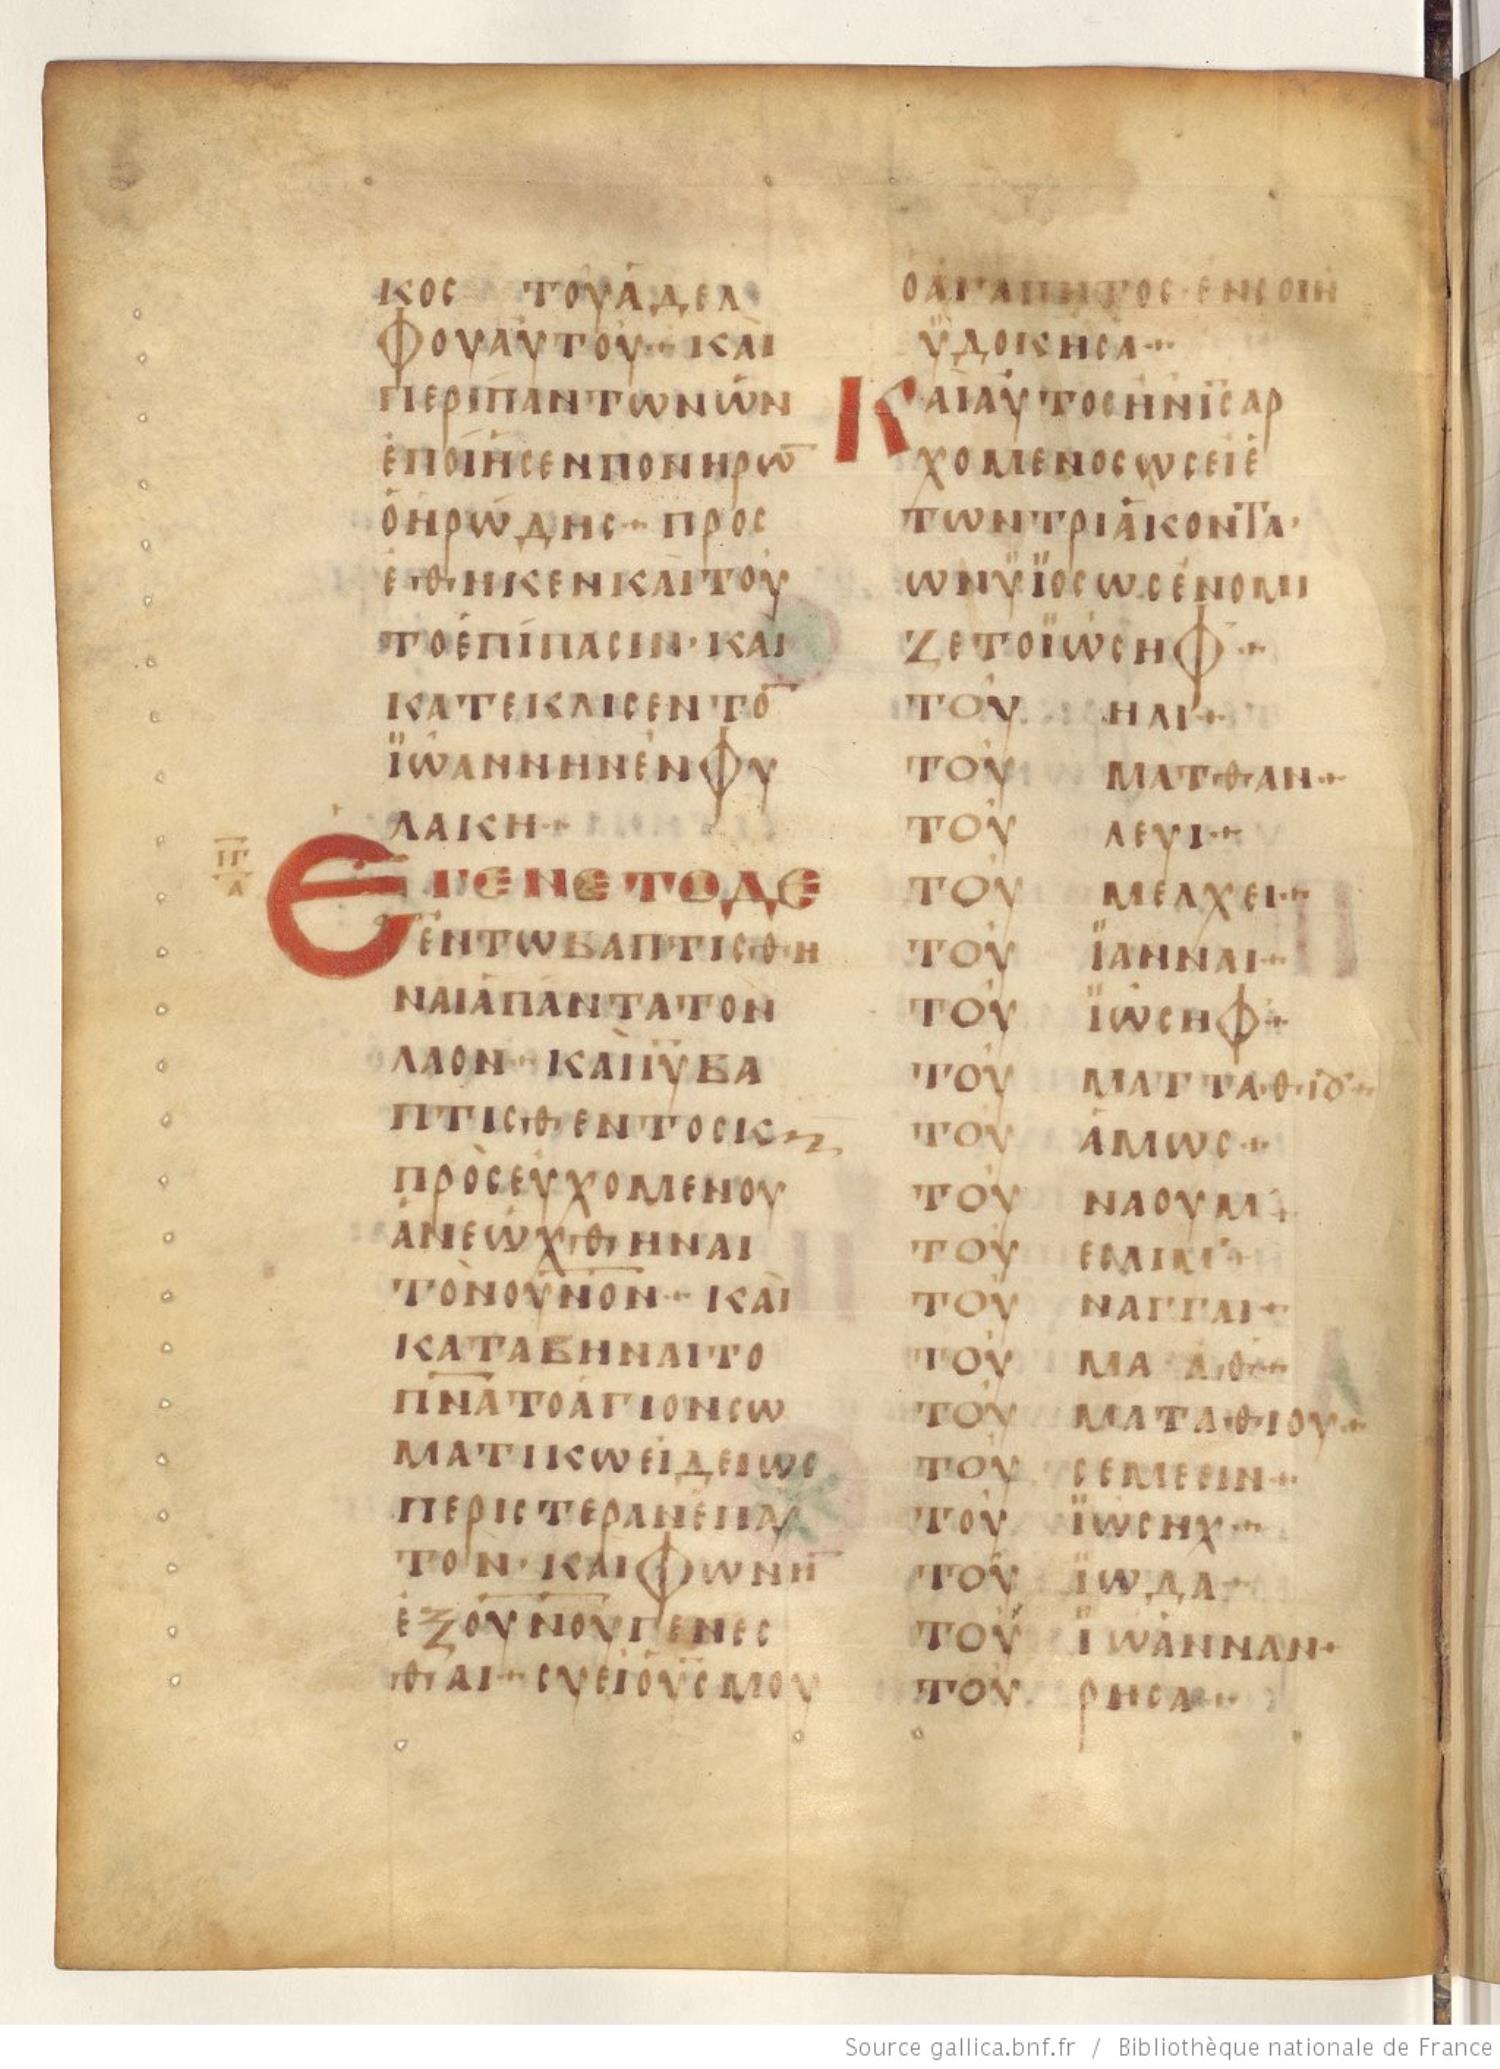 ΚΟC ΤΟΥΑΔΕΛ
ΦΟΥΑΥΤΟΥ·ΚΑΙ
ΠΕΡΙΠΑΝΤΩΝΩΝ
ΕΠΟΙΗCΕΝΠΟΝΗΡΩ̅
ΟΗΡΩΔΗC·ΠΡΟC
ΕΘΗΚΕΝΚΑΙΤΟΥ
ΤΟΕΠΙΠΑCΙΝ·ΚΑΙ
ΚΑΤΕΚΛΙCΕΝΤΟ̅
ΪΩΑΝΝΗΝΕΝΦΥ
ΛΑΚΗ·
ΙΓ
Α
ΕΓΕΝΕΤΟΔΕ
ΕΝΤΩΒΑΠΤΙCΘΗ
ΝΑΙΑΠΑΝΤΑΤΟΝ
ΛΑΟΝ·ΚΑΙΙ̅Υ̅ΒΑ
ΠΤΙCΘΕΝΤΟCΚ
ΠΡΟCΕΥΧΟΜΕΝΟΥ
ΑΝΕΩΧΘΗΝΑΙ
ΤΟΝΟΥ̅Ν̅Ο̅Ν̅·ΚΑΙ
ΚΑΤΑΒΗΝΑΙΤΟ
Π̅Ν̅Α̅ΤΟΑΓΙΟΝCΩ
ΜΑΤΙΚΩΕΙΔΕΙΩC
ΠΕΡΙCΤΕΡΑΝΕΠΑΥ
ΤΟΝ·ΚΑΙΦΩΝΗ̅
ΕΞΟΥ̅Ν̅Ο̅Υ̅ΓΕΝΕC
ΘΑΙ·CΥΕΙΟΥ̅C̅ΜΟΥ
ΟΑΓΑΠΗΤΟC·ΕΝCΟΙΗ
ΫΔΟΚΗCΑ·
ΚΑΙΑΥΤΟCΗΝΙ̅C̅ΑΡ
ΧΟΜΕΝΟCΩCΕΙΕ
ΤΩΝΤΡΙΑΚΟΝΤΑ·
ΩΝΫΪΟCΩCΕΝΟΜΙ
ΖΕΤΟΪΩCΗΦ·
ΤΟΥ ΗΛΙ·
ΤΟΥ ΜΑΤΘΑΝ·
ΤΟΥ ΛΕΥΙ·
ΤΟΥ ΜΕΛΧΕΙ·
ΤΟΥ ΪΑΝΝΑΙ·
ΤΟΥ ΪΩCΗΦ·
ΤΟΥ ΜΑΤΤΑΘΙΟΥ·
ΤΟΥ ΑΜΩC·
ΤΟΥ ΝΑΟΥΜ·
ΤΟΥ ΕCΛΙΜ·
ΤΟΥ ΝΑΓΓΑΙ·
ΤΟΥ ΜΑ ΑΘ·
ΤΟΥ ΜΑΤΑΘΙΟΥ·
ΤΟΥ CΕΜΕΕΙΝ·
ΤΟΥ ΪΩCΗΧ·
ΤΟΥ ΪΩΔΑ·
ΤΟΥ ΪΩΑΝΝΑΝ·
ΤΟΥ ΡΗCΑ·
Source gallica.bnf.fr / Bibliothèque nationale de France